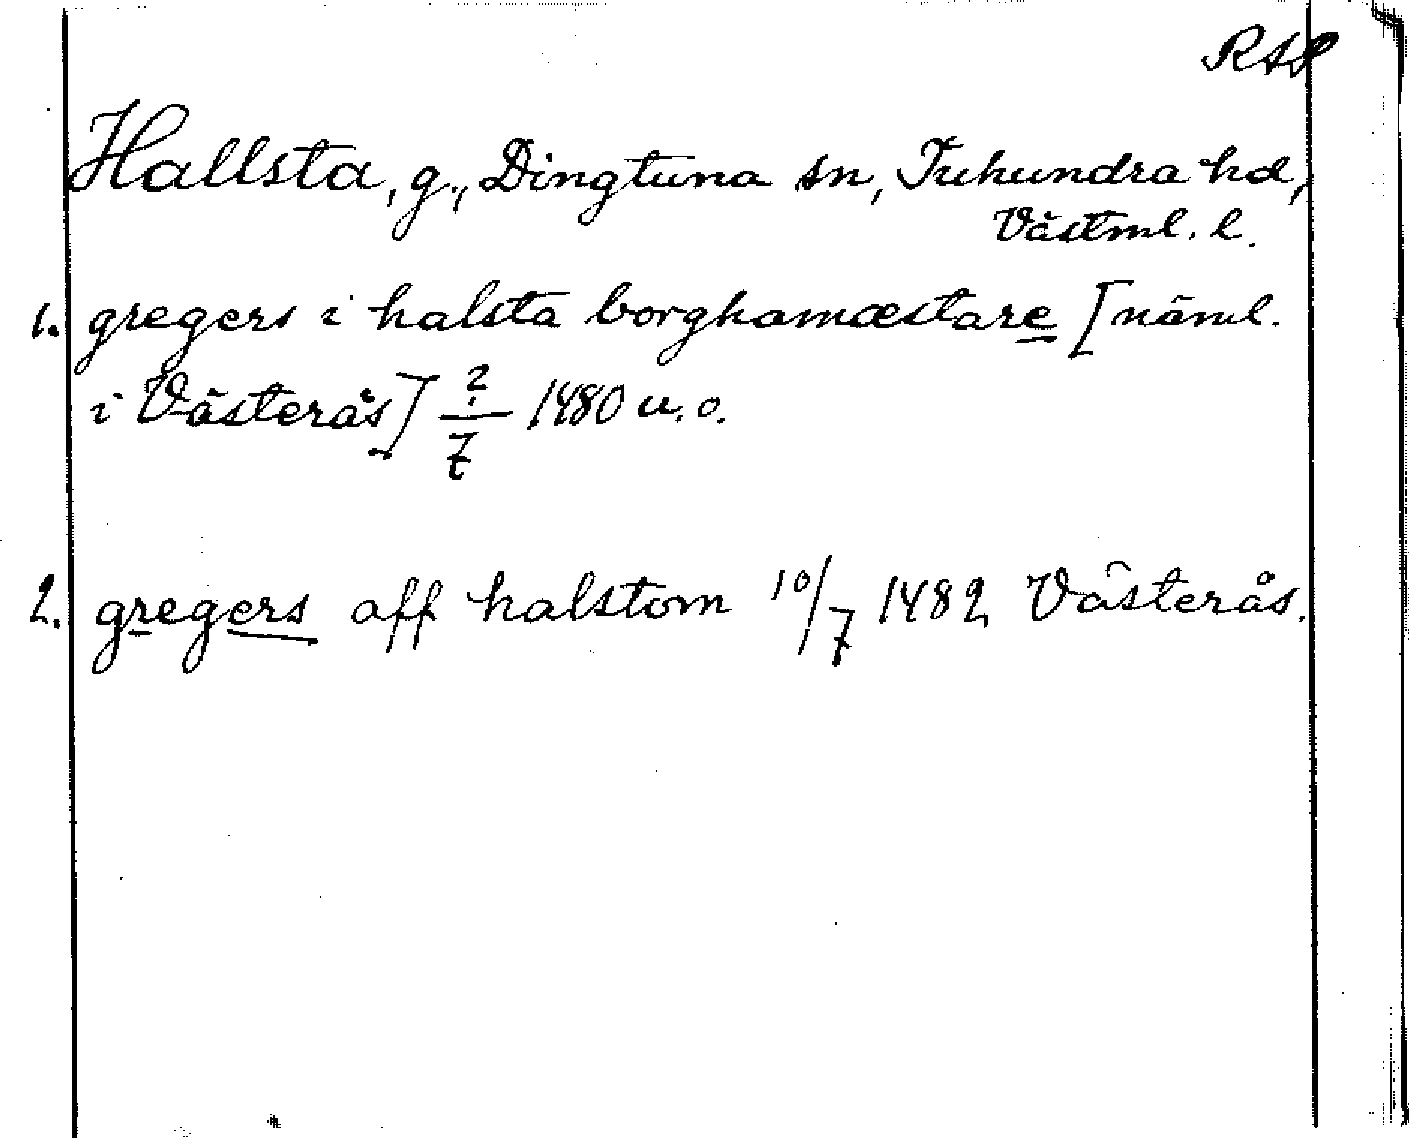 RAP
Hallsta, g., Dingtuna sn, Tuhundra hd,
Västml. l.
1. gregers i halsta borghamæstare [näml.
i Västerås] ?/7 1480 u.o.
2. gregers aff halstom 10/7 1482 Västerås.